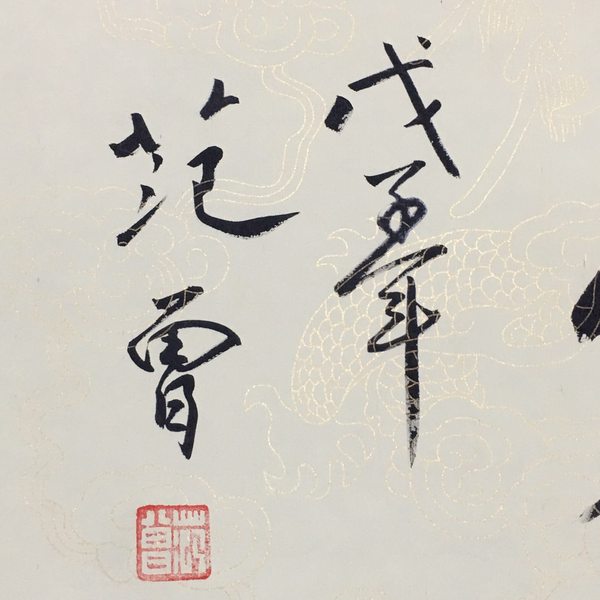 戊子年
范曾
范曾